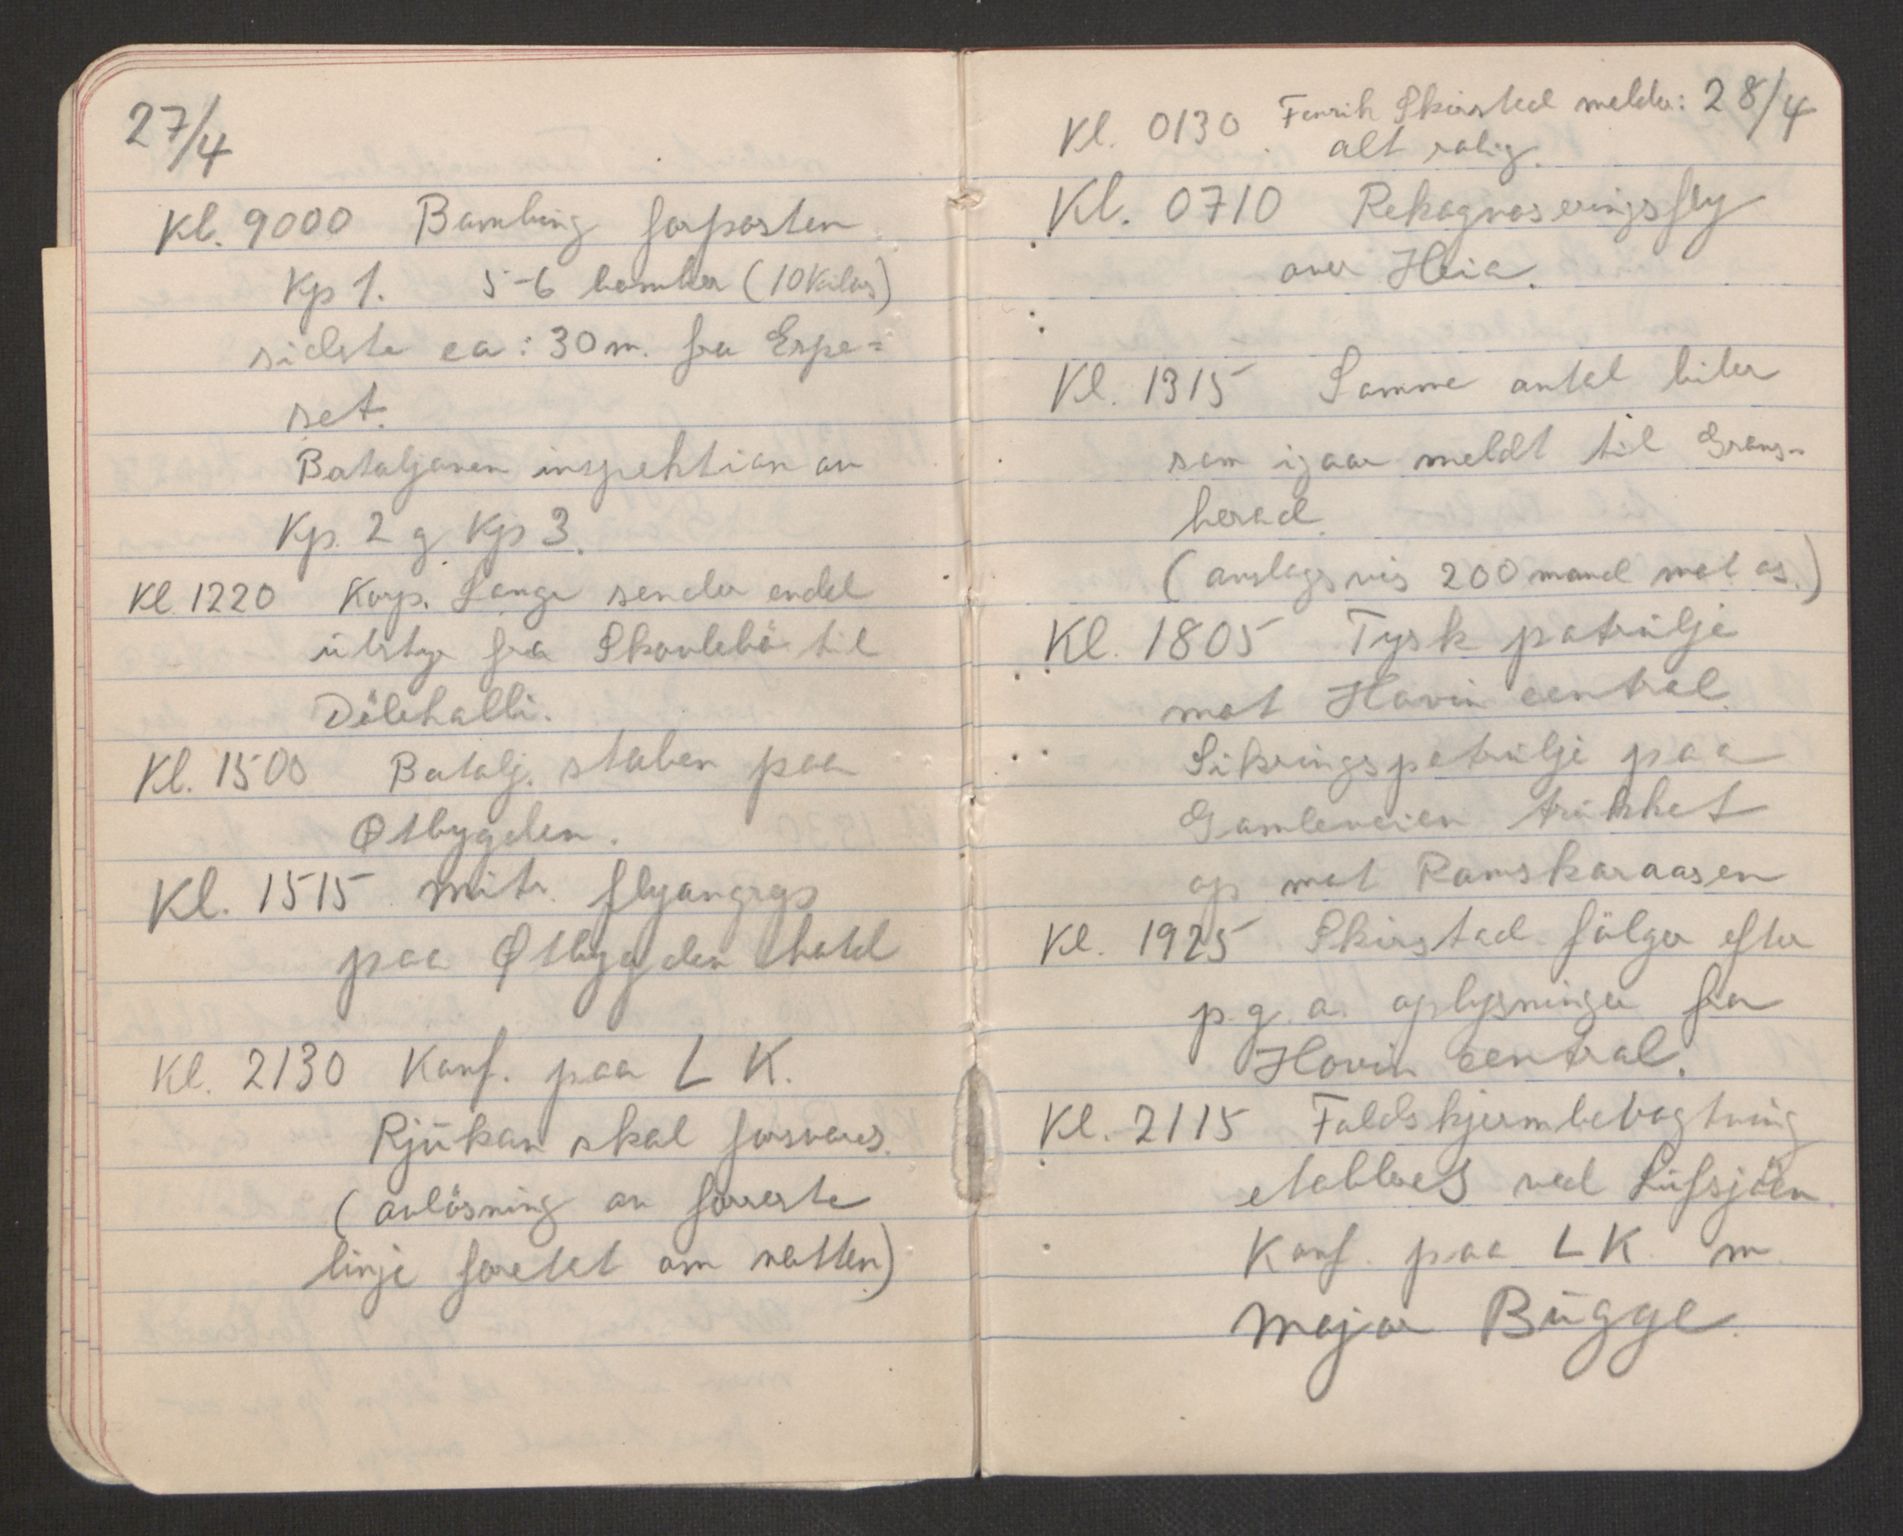 27/4
Kl. 9000 Bombing forposten
Kp 1. 5-6 bomber (10 Kilos)
sidste ca: 30 m. fra Espe=
set.
Bataljonen inspektion av
Kp. 2 g Kp 3.
Kl 1220 Korp. Lange sender endel
utstyr fra Skovlebö til
Dölehalli.
Kl. 1500 Batalj. staben paa
Øtbygden.
Kl. 1515 Mitr. flyangrep
paa Øtbygden hotel
Kl. 2130 Konf. paa L K.
Rjukan skal forsvares.
(avlösning av forreste
linje foretat om natten)
28/4
Kl. 0130. Fenrik Skirstad melder:
alt rolig.
Kl. 0710 Rekognoseringsfly
over Heia.
Kl. 1315 Samme antal biler
som igaar meldt til Grans-
herad.
(anslagsvis 200 mand mot os.)
Kl. 1805 Tysk patrulje
mot Hovin central.
Sikringspatrulje paa
Gamleveien trukket
op mot Ramskaraasen
Kl. 1925 Skirstad fölger efter
p.g.a. oplysninger fra
Hovin central.
Kl. 2115 Faldskjermbevogtning
etableres ved Lufsjöen
Konf. paa L K m.
Major Bugge.